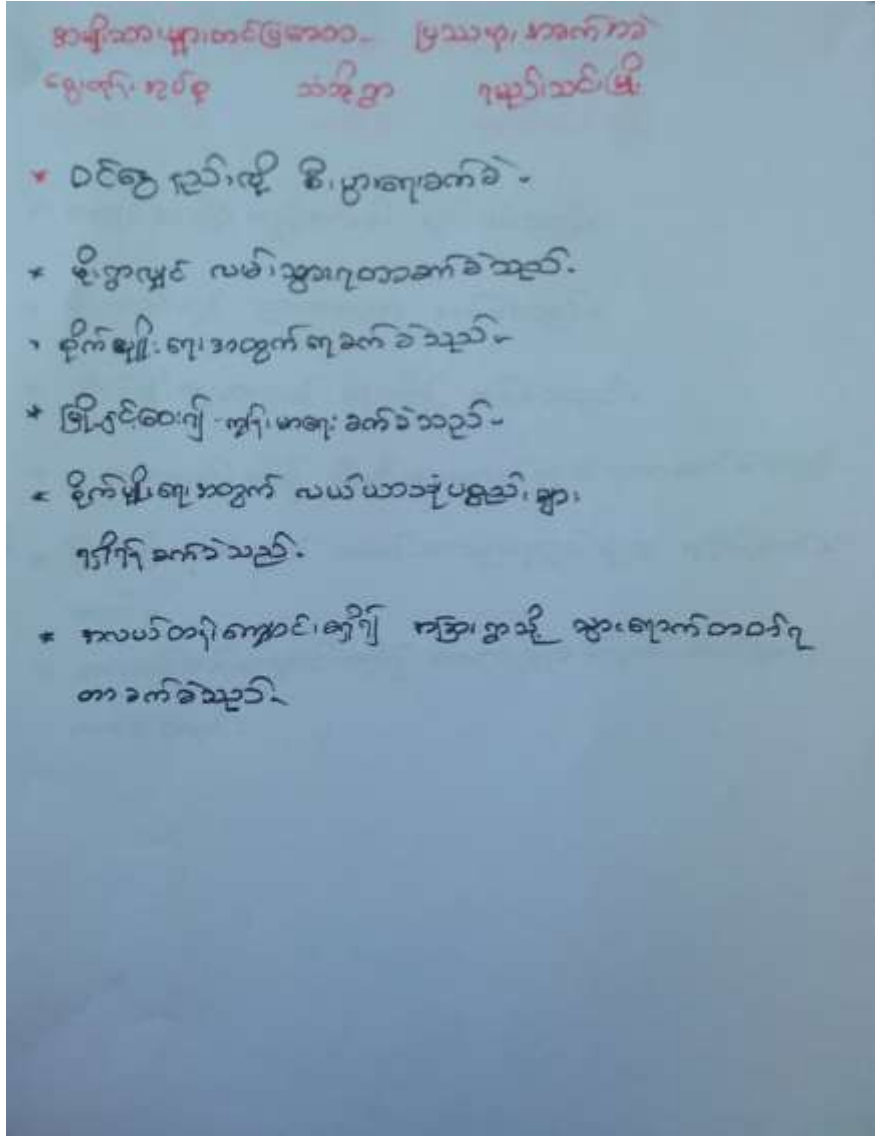 အမျိုးသားများတင်ပြသော ပြဿနာ, အခက်အခဲ
ရွှေကုန်းအုပ်စု သံအိုရွာ ရမည်းသင်းမြို့
* ဝင်ငွေ နည်း၍ စီးပွားရေးခက်ခဲ -
* မိုးရွာလျှင် လမ်းသွားရတာခက်ခဲသည်.
, စိုက်ပျိုးရေးအတွက်ရေခက်ခဲသည် -
* မြို့နှင့်ဝေး၍ ကျန်းမာရေးခက်ခဲသည် -
* စိုက်ပျိုးရေးအတွက် လယ်ယာသုံးပစ္စည်းများ
ရရှိရန်ခက်ခဲသည်.
* အလယ်တန်းကျောင်းမရှိ၍ အခြားရွာသို့ သွားရောက်တတ်ရ
တာခက်ခဲသည်-